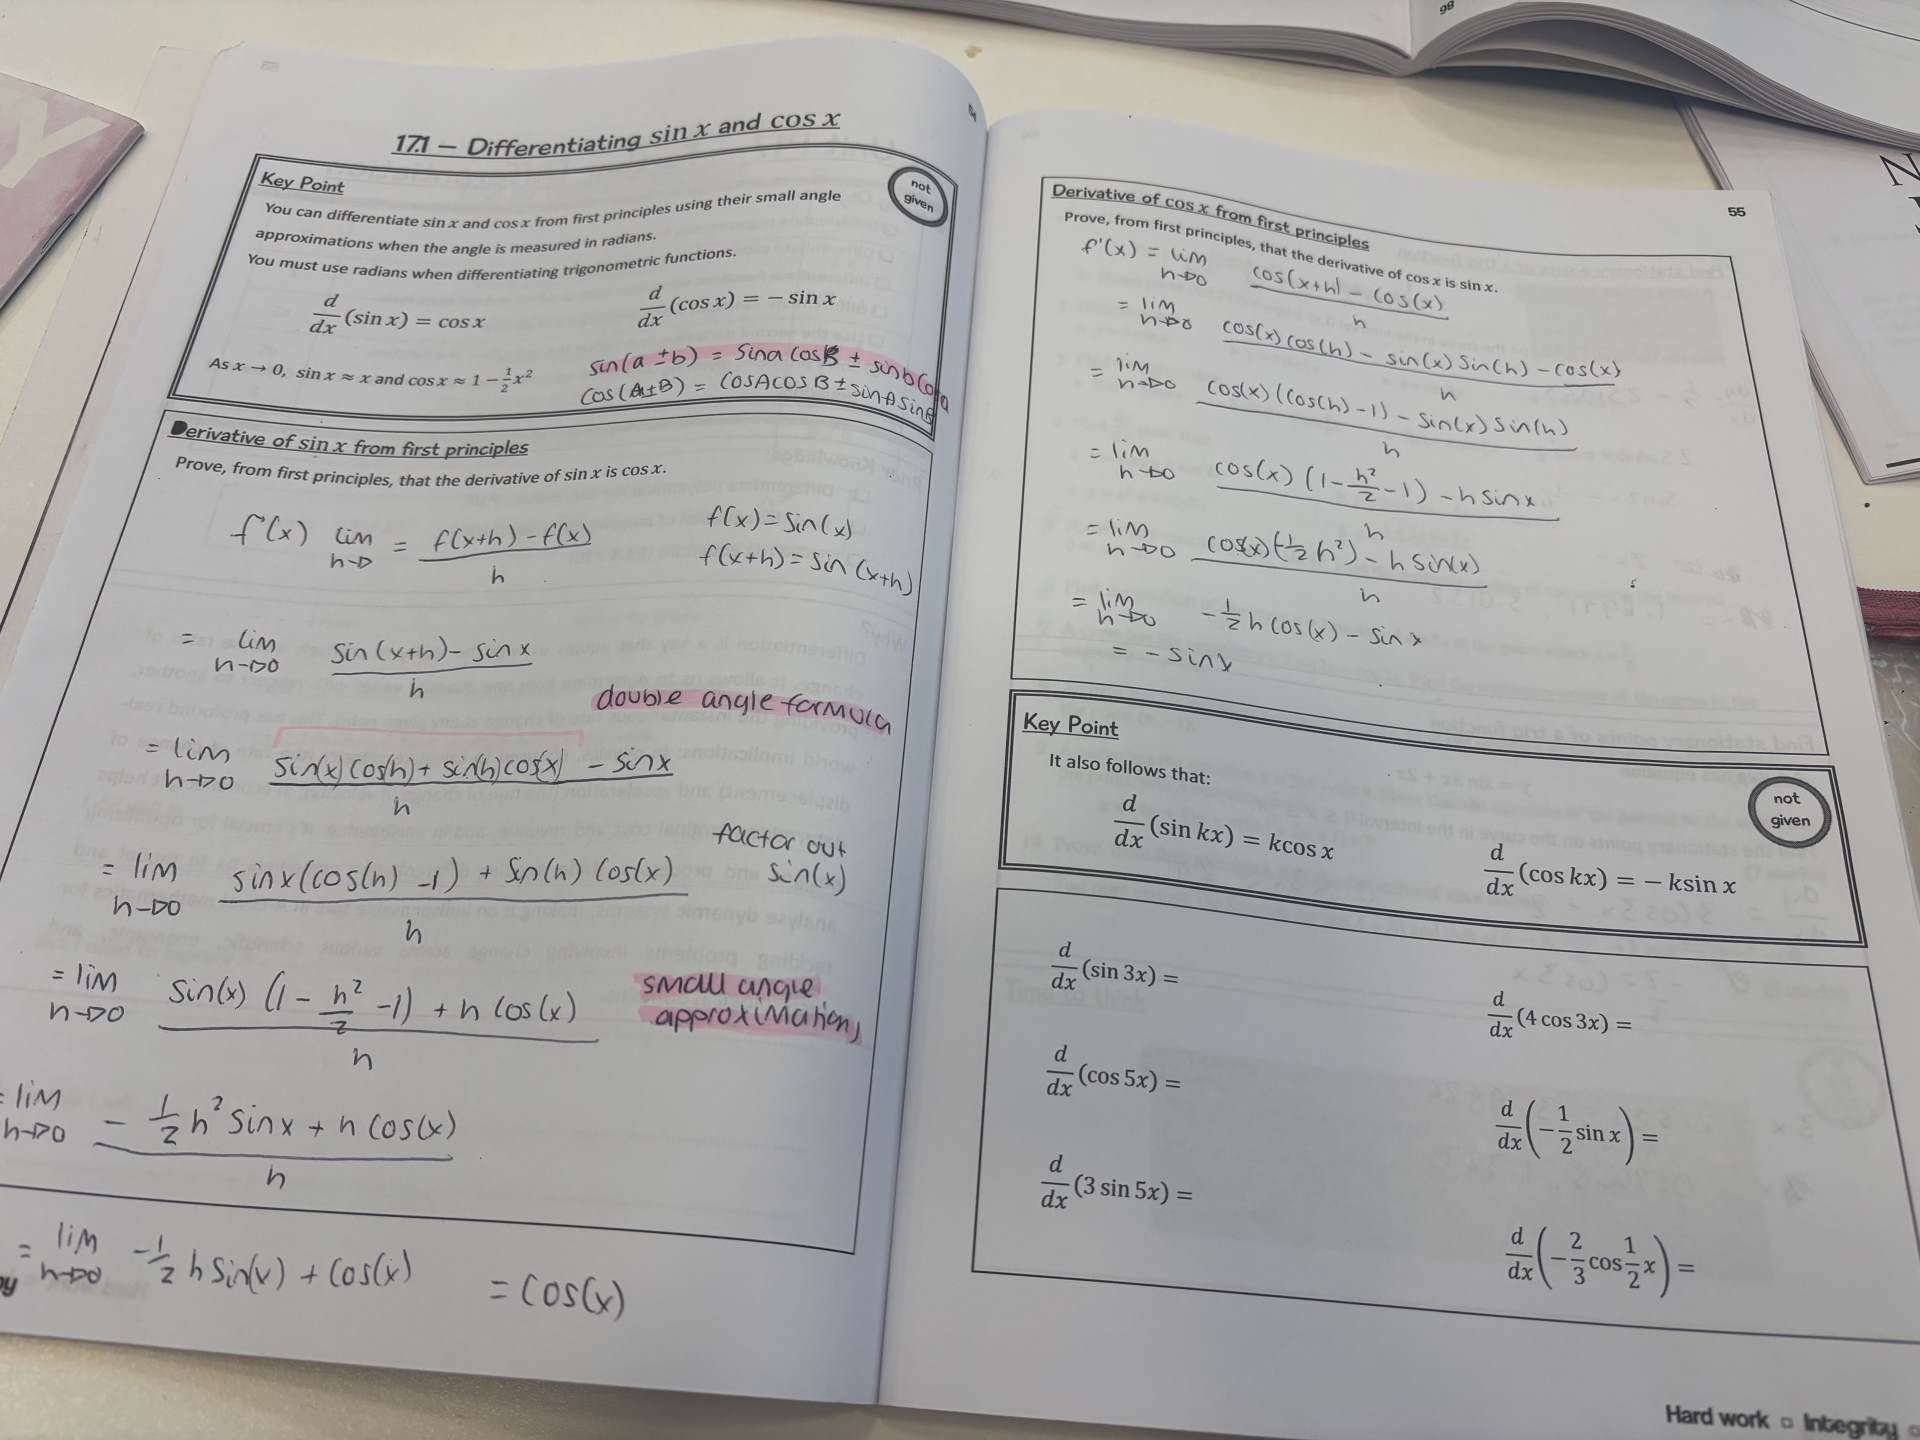 98
Y
N
54
17.1 — Differentiating sin x and cos x
Key Point
not given
You can differentiate sin x and cos x from first principles using their small angle
approximations when the angle is measured in radians.
You must use radians when differentiating trigonometric functions.
d/dx (sin x) = cos x
d/dx (cos x) = − sin x
As x → 0, sin x ≈ x and cos x ≈ 1 − 1/2 x²
sin(a ± b) = Sina CosB ± sinb Cosa
Cos(A±B) = COSACOSB ± SinASinB
Derivative of sin x from first principles
Prove, from first principles, that the derivative of sin x is cos x.
f'(x) lim h→0 = f(x+h) − f(x) / h
f(x) = Sin(x)
f(x+h) = Sin (x+h)
= lim h→0 Sin(x+h) − Sinx / h
double angle formula
= lim h→0 Sin(x)Cos(h) + sin(h)cos(x) − Sinx / h
factor out
Sin(x)
= lim h→0 sinx(cos(h) −1) + Sin(h) Cos(x) / h
= lim h→0 Sin(x) (1 − h²/2 −1) + h Cos(x) / h
small angle
approximation)
= lim h→0 − 1/2 h² Sinx + h Cos(x) / h
= lim h→0 −1/2 h Sin(x) + Cos(x) = Cos(x)
55
Derivative of cos x from first principles
Prove, from first principles, that the derivative of cos x is sin x.
f'(x) = lim h→0 cos(x+h) − Cos(x) / h
= lim h→0 cos(x)cos(h) − sin(x)Sin(h) − cos(x) / h
= lim h→0 cos(x)(cos(h) −1) − Sin(x) Sin(h) / h
= lim h→0 cos(x) (1 − h²/2 −1) − h Sinx / h
= lim h→0 cos(x)(−1/2 h²) − h Sin(x) / h
= lim h→0 −1/2 h Cos(x) − Sin x
= − Sinx
Key Point
not given
It also follows that:
d/dx (sin kx) = kcos x
d/dx (cos kx) = − ksin x
d/dx (sin 3x) =
d/dx (4 cos 3x) =
d/dx (cos 5x) =
d/dx (−1/2 sin x) =
d/dx (3 sin 5x) =
d/dx (−2/3 cos 1/2 x) =
Hard work □ Integrity □